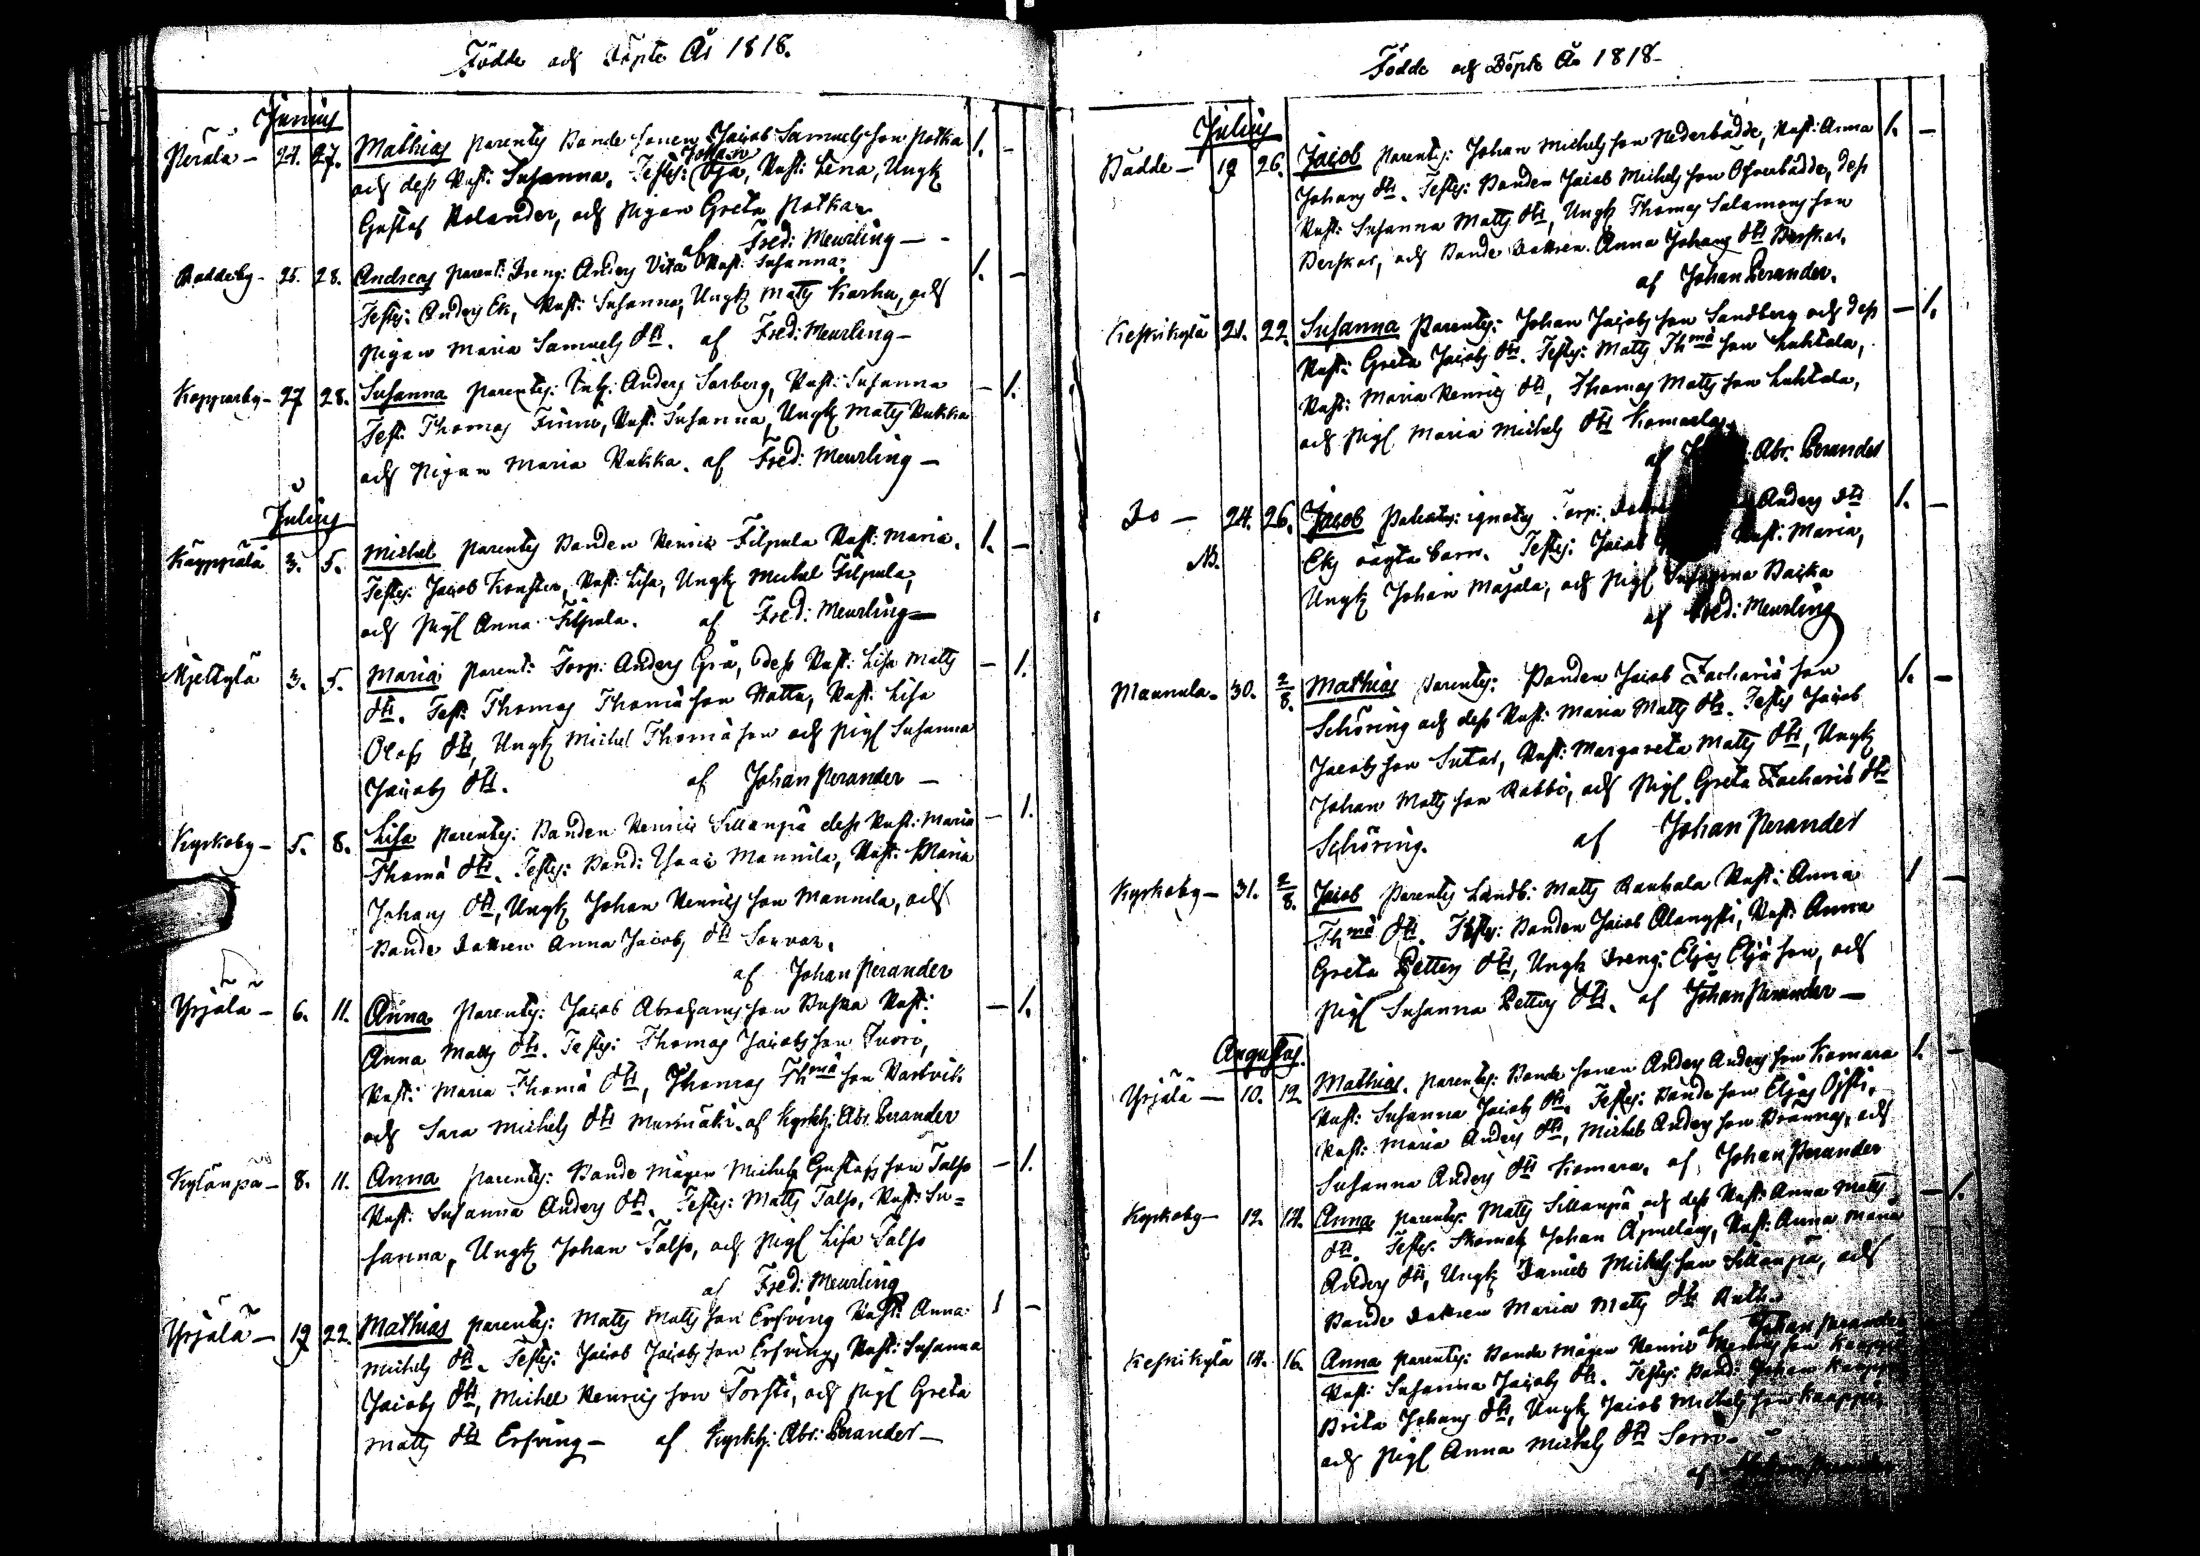 Födde och Döpte År 1818.
Junius
Perälä - 24. 27. Mathias parentes Bonde sonen Jacob Samuels son potka 1. -
och dess Hust: Susanna. Testes: Johan Oja, Hust: Lena, Ungk
Gustaf Rolander, och pigan Greta potka.
af Fred: Meurling -
Boddeby - 25. 28. Andreas parent: Dreng: Anders Vita Hust: Susanna: 1. -
Testes: Anders Ek, Hust: Susanna, Ungk Matts Karhu, och
pigan Maria Samuels dtr. af Fred: Meurling -
Kopparby - 27 28. Susanna parentes: Anders Sarberg, Hust: Susanna - 1.
Test: Thomas Finne, Hust: Susanna, Ungk Matts Kukka
och pigan Maria Kukka. af Fred: Meurling -
Julius
Käyppiälä 3. 5. Michel parentes Bonden Henric Filpula Hust: Maria. 1. -
Testes: Jacob Konster, Hust: Lisa, Ungk Michel Filpula,
och pigl Anna Filpula. af Fred: Meurling -
Mjettylä 3. 5. Maria parent: Torp: Anders Grå, dess Hust: Lisa Matts - 1.
dtr. Test: Thomas Thomæ son Hatta, Hust: Lisa
Olofs dtr, Ungk Michel Thomæ son och pigl Susanna
Jacobs dtr. af Johan Perander -
Kyrkoby - 5. 8. Lisa parentes: Bonden Henric Sillanpä dess Hust: Maria - 1.
Thomæ dtr. Testes: Bond: Isaac Mannila, Hust: Maria
Johans dtr, Ungk Johan Henrics son Mannila, och
Bonde Dottren Anna Jacobs dtr Sorvar.
af Johan Perander
Yrjälä - 6. 11. Anna parentes: Jacob Abrahams son Huska Hust: - 1.
Anna Matts dtr. Testes: Thomas Jacobs son Tuori,
Hust: Maria Thomæ dtr, Thomas Thmæ son Vartvik
och Sara Michels dtr Murnäki. af Kyrkh: Abr: Perander
Kylänpä - 8. 11. Anna parentes: Bonde Mågen Michels Gustafs son Talso - 1.
Hust: Susanna Anders dtr. Testes: Matts Talso, Hust: Su=
sanna, Ungk Johan Talso, och pigl Lisa Talso
af Fred: Meurling
Yrjälä - 19 22 Mathias parentes: Matts Matts son Erfving Hust: Anna 1 -
Michels dtr. Testes: Jacob Jacobs son Erfving, Hust: Susanna
Jacobs dtr, Michel Henrics son Torsti, och pigl Greta
Matts dtr Erfving - af Kyrkh: Abr: Perander -
Födde och Döpte År 1818 -
Julius
Bådde - 19 26. Jacob parentes: Johan Michels son Nederbådde, Hust: Anna 1. -
Johans dtr. Testes: Bonden Jacob Michels son Öfverbådde, dess
Hust: Susanna Matts dtr, Ungk Thomas Salamons son
Berskar, och Bonde Dottren Anna Johans dtr Berskar.
af Johan Perander.
Keskikylä 21. 22 Susanna Parentes: Johan Jacobs son Sandberg och dess - 1.
Hust: Greta Jacobs dtr. Testes: Matts Thmæ son Luhtala,
Hust: Maria Henrics dtr, Thomas Matts son Luhtala,
och pigl Maria Michels dtr Komaela.
af Abr: Perander
Do - 24. 26. Jacob ignotus Torp: Anders dtr 1. -
NB. Ek oägta barn. Testes: Jacob Hust: Maria,
Ungk Johan Majala, och pigl Susanna Backa
af Fred: Meurling
Mannula - 30. 2/8. Mathias parentes: Bonden Jacob Zachariæ son 1. -
Schöring och dess Hust: Maria Matts dtr. Testes Jacob
Jacobs son Sutar, Hust: Margareta Matts dtr, Ungk
Johan Matts son Rabbi, och pigl Greta Zachariæ dtr
Schöring. af Johan Perander
Kyrkoby - 31. 2/8. Jacob parentes Landb: Matts Rantala Hust: Anna 1 -
Thmæ dtr. Testes: Bonden Jacob Alangssi, Hust: Anna
Greta Petters dtr, Ungk Dreng: Elias Eliæ son, och
pigl Susanna Petters dtr. af Johan Perander -
Augustus.
Yrjälä - 10. 12 Mathias. parentes: Bonde sonen Anders Anders son Komara 1. -
Hust: Susanna Jacobs dtr. Testes: Bonde son Elias Ojsti,
Hust: Maria Anders dtr, Michel Anders son Brännas, och
Susanna Anders dtr Komara. af Johan Perander
Kyrkoby - 12. 14. Anna parentes: Matts Sillanpä, och dess Hust: Anna Matts - 1.
dtr. Testes: Skomak Johan Apmelars, Hust: Anna Maria
Anders dtr, Ungk Daniel Michels son Sillanpä, och
Bonde Dottren Maria Matts dtr Ruth.
af Johan Perander
Keskikylä 14. 16. Anna parentes: Bonde Mågen Henric Henrics son Knappi
Hust: Susanna Jacobs dtr. Testes: Bond: Johan Knappi
Brita Johans dtr, Ungk Jacob Michels son Knappi,
och pigl Anna Michels dtr Sorri -
af Johan Perander